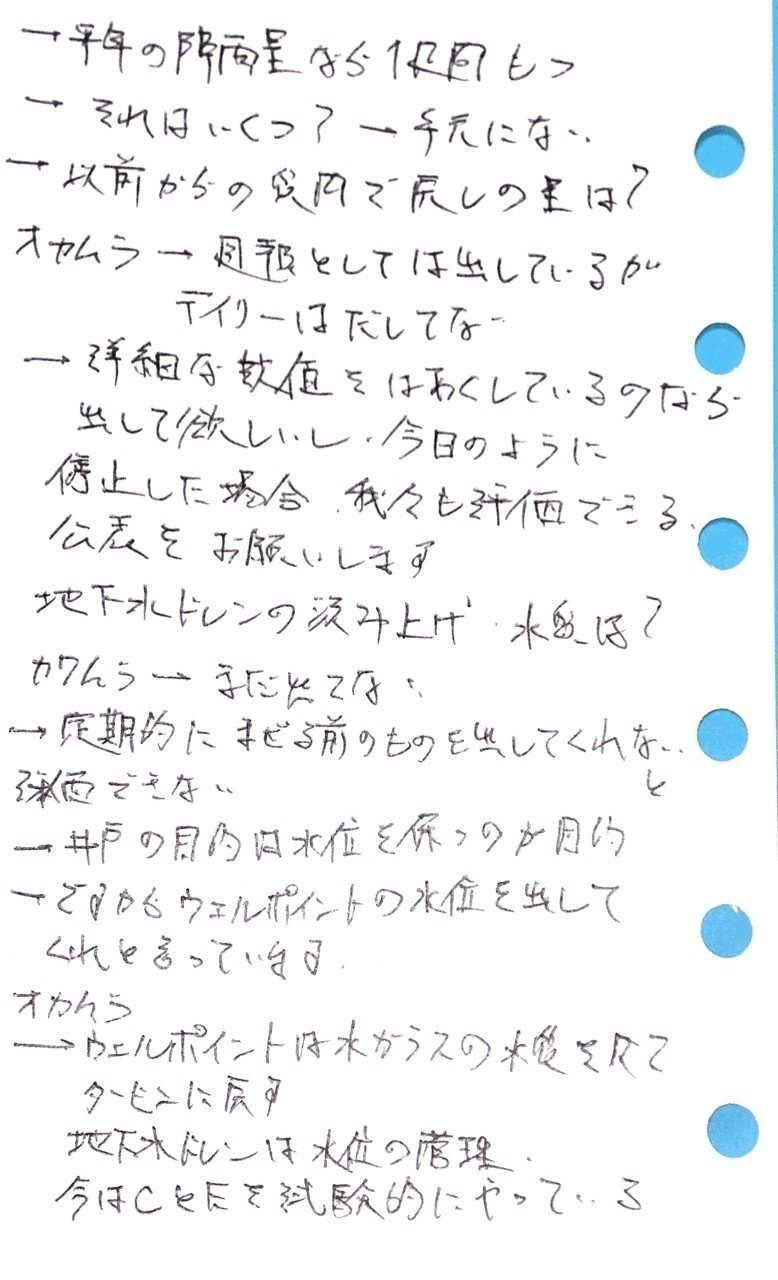 →平年の降雨量なら1週間もつ
→それはいくつ?→手元にない
→以前からの質問で戻しの量は?
オカムラ→週報としては出しているが
デイリーはだしてない
→詳細な数値をはあくしているのなら
出して欲しいし、今日のように
停止した場合、我々も評価できる、
公表をお願いします
地下水ドレンの汲み上げ、水質は?
カワムラ→まだ出てない
→定期的にまぜる前のものを出してくれないと
評価できない
→井戸の目的は水位を保つのが目的
→ですからウェルポイントの水位を出して
くれと言っています。
オカムラ
→ウェルポイントは水ガラスの水質を見て
タービンに戻す
地下水ドレンは水位の管理、
今はCとEを試験的にやっている